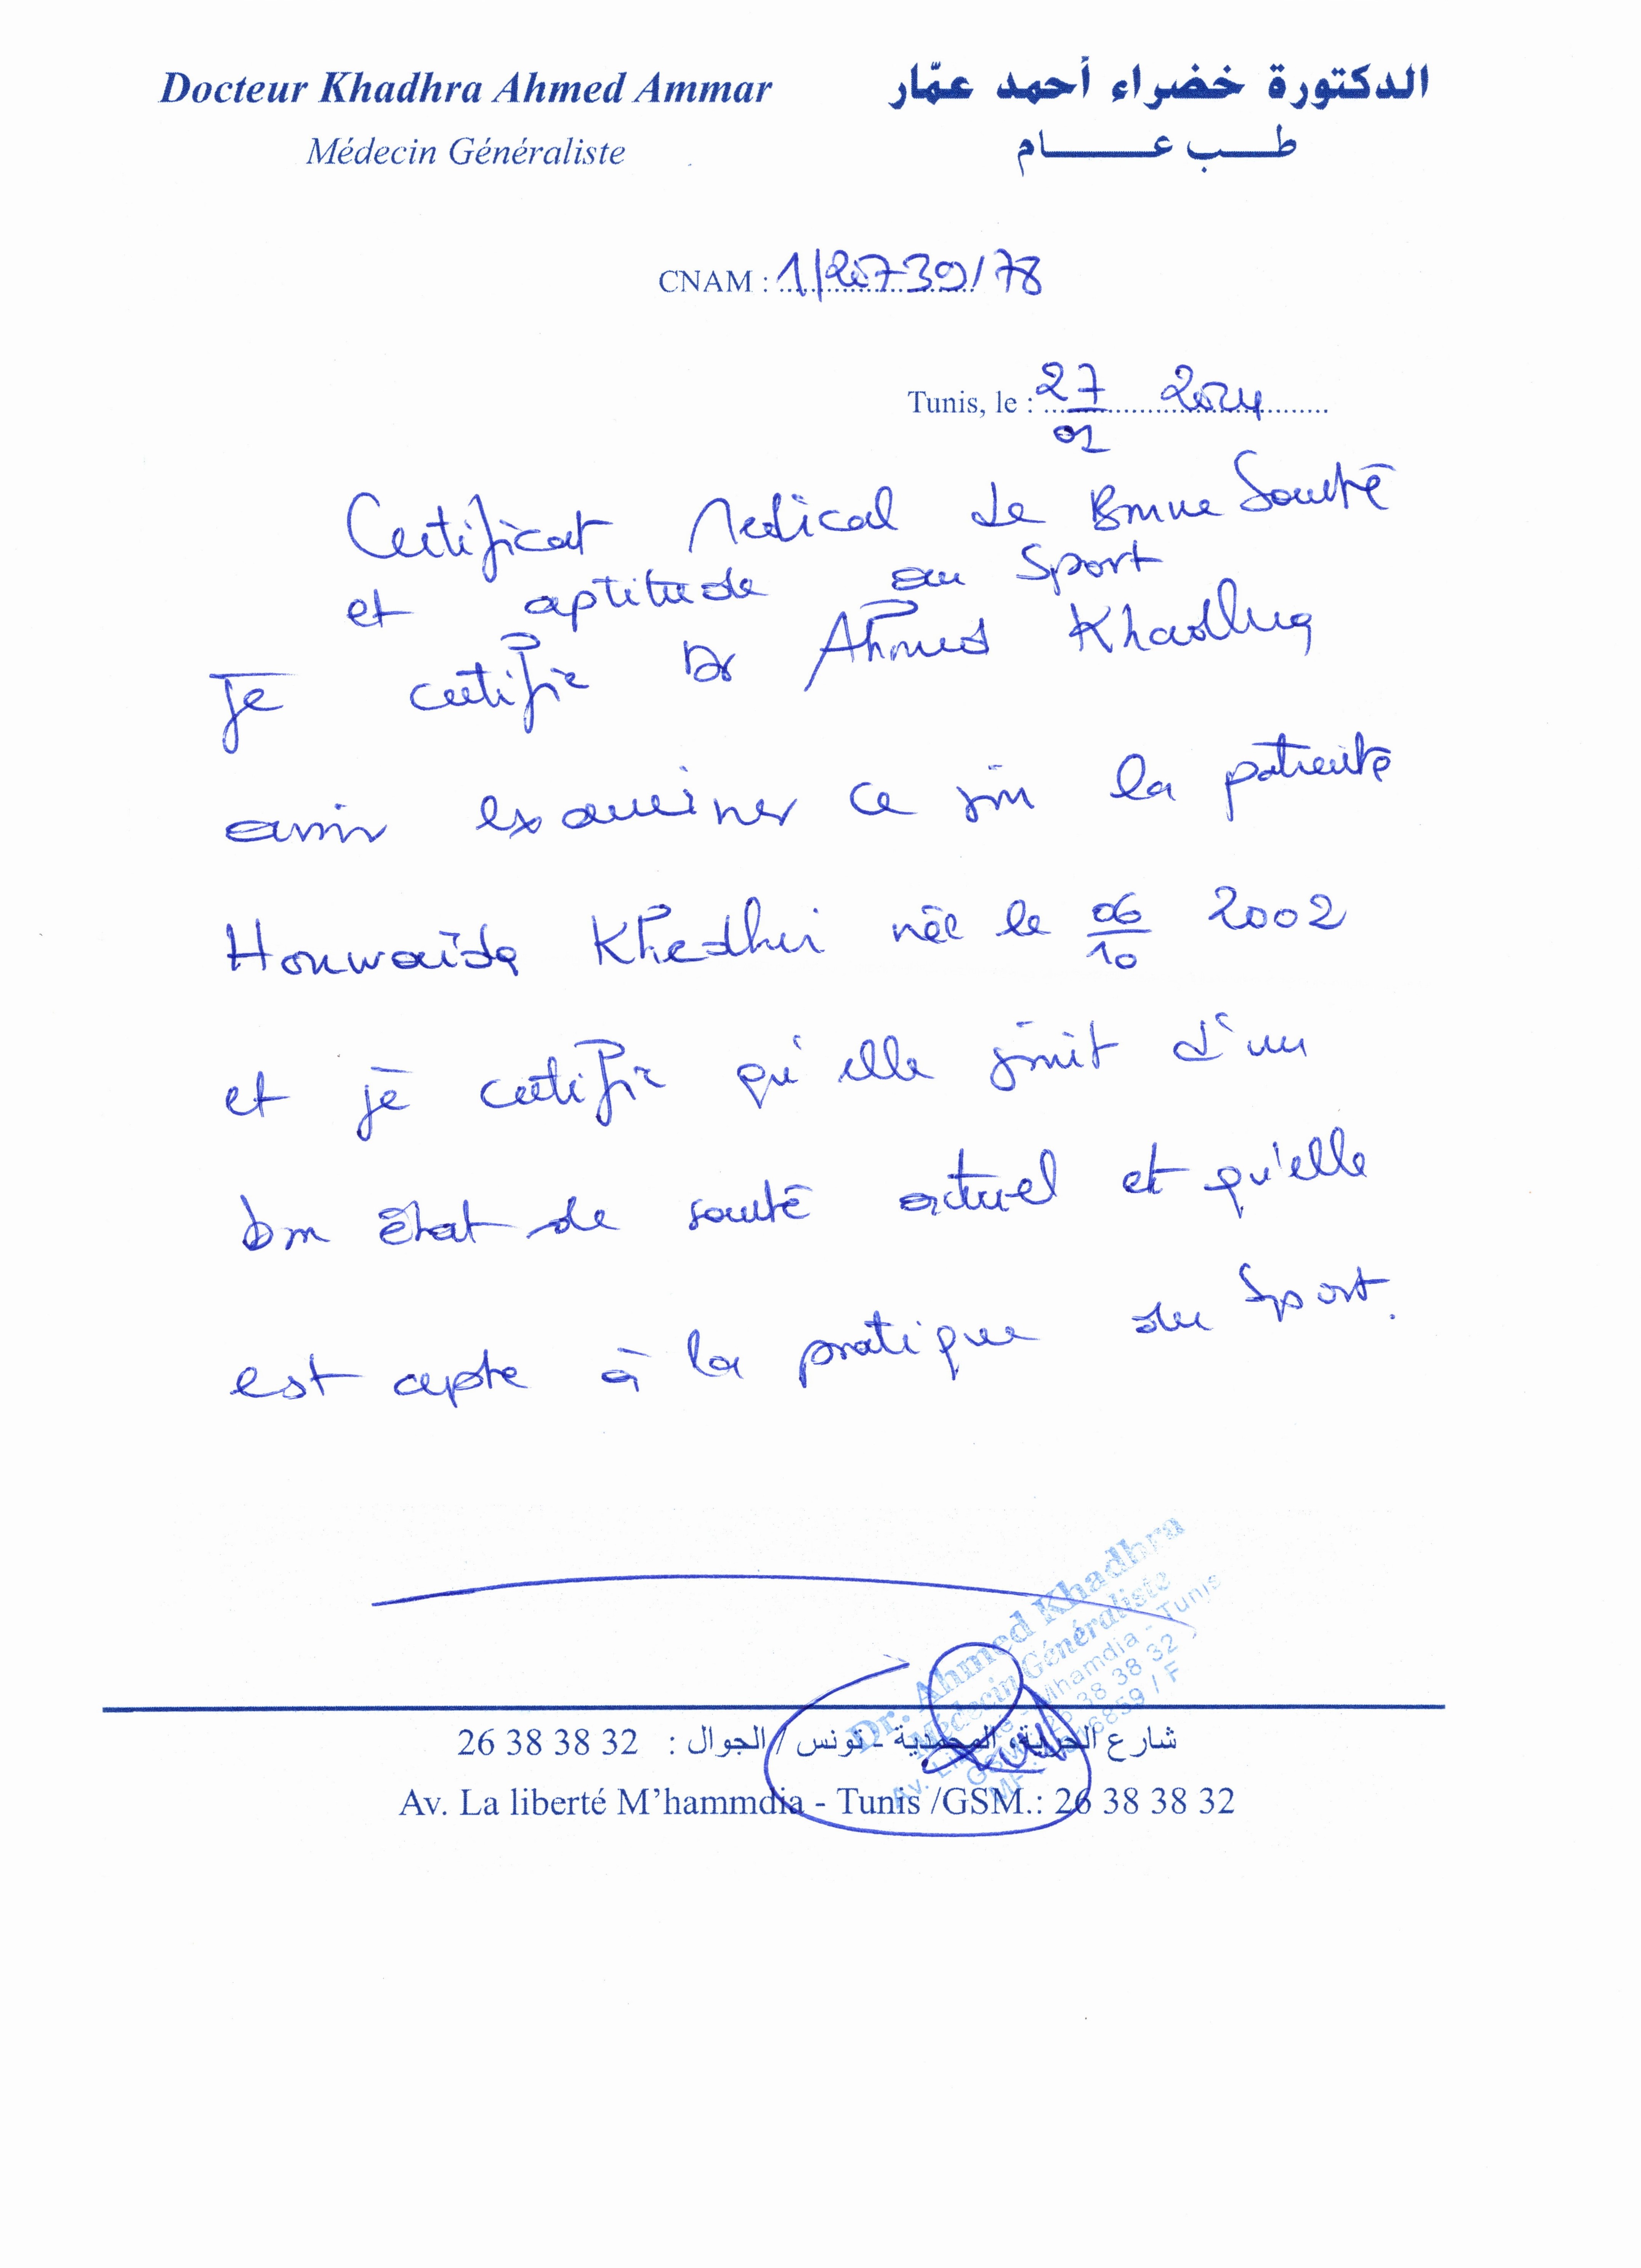 Docteur Khadhra Ahmed Ammar
الدكتورة خضراء أحمد عمّار
Médecin Généraliste
طب عام
CNAM : 1/26730/78
Tunis, le : 27/02 2024
Certificat Medical de Bonne Santé
et aptitude au Sport
Je certifie Dr Ahmed Khadhra
avoir examiner ce jour la patiente
Houwaida Khedhri née le 06/10 2002
et je certifie qu'elle jouit d'un
bon état de santé actuel et qu'elle
est apte à la pratique du Sport.
Dr. Ahmed Khadhra
Médecin Généraliste
Av. Mhamdia - Tunis
GSM 26 38 38 32
شارع الحرية، المحمدية - تونس / الجوال : 26 38 38 32
Av. La liberté M'hammdia - Tunis /GSM.: 26 38 38 32